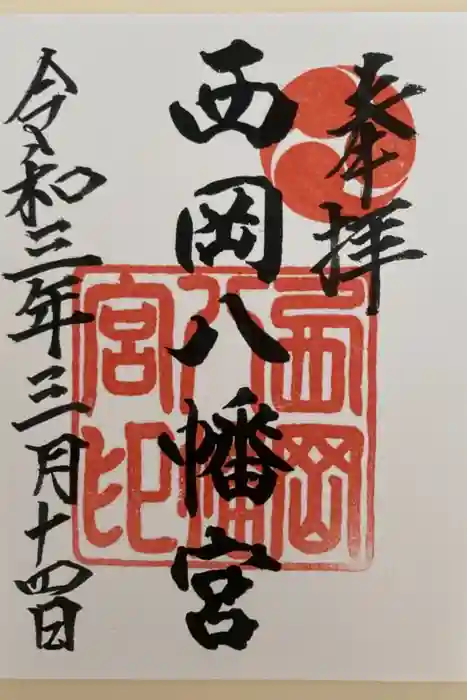 奉拝
西岡八幡宮
令和三年三月十四日
西岡
八幡
宮印